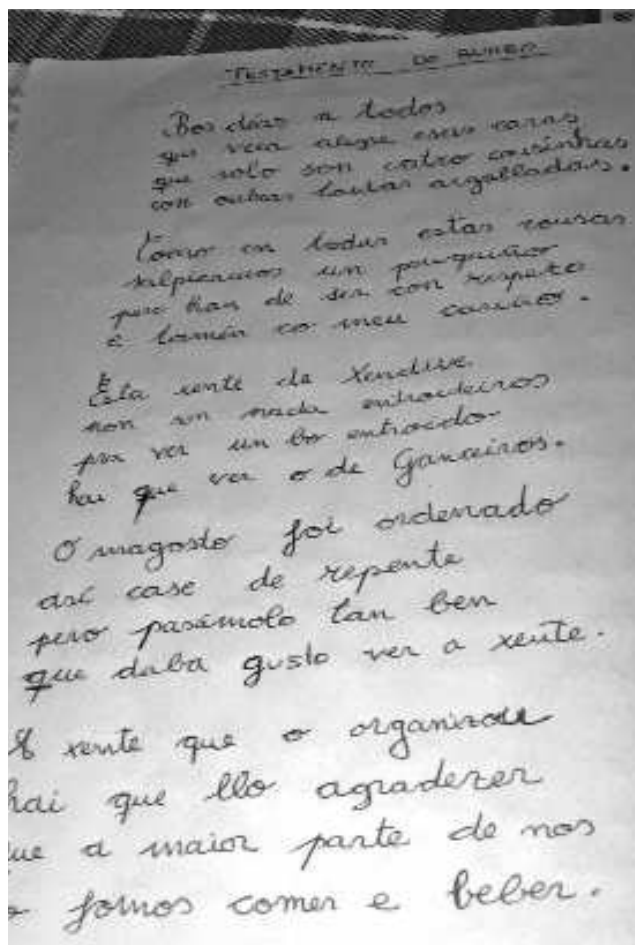 TESTAMENTO DO BURRO
Bos días a todos
que vexa alegre esas caras
que solo son catro cousinhas
con outras tantas argalladas.
Como en todas estas cousas
salpicamos un pouquiño
pero han de ser con respeto
e tamén co meu cariño.
Esta xente de Xendive
non son nada entroideiros
pra ver un bo entroido
hai que ver o de Ganceiros.
O magosto foi ordenado
así case de repente
pero pasámolo tan ben
que daba gusto ver a xente.
A xente que o organizou
hai que llo agradezer
que a maior parte de nos
o fomos comer e beber.